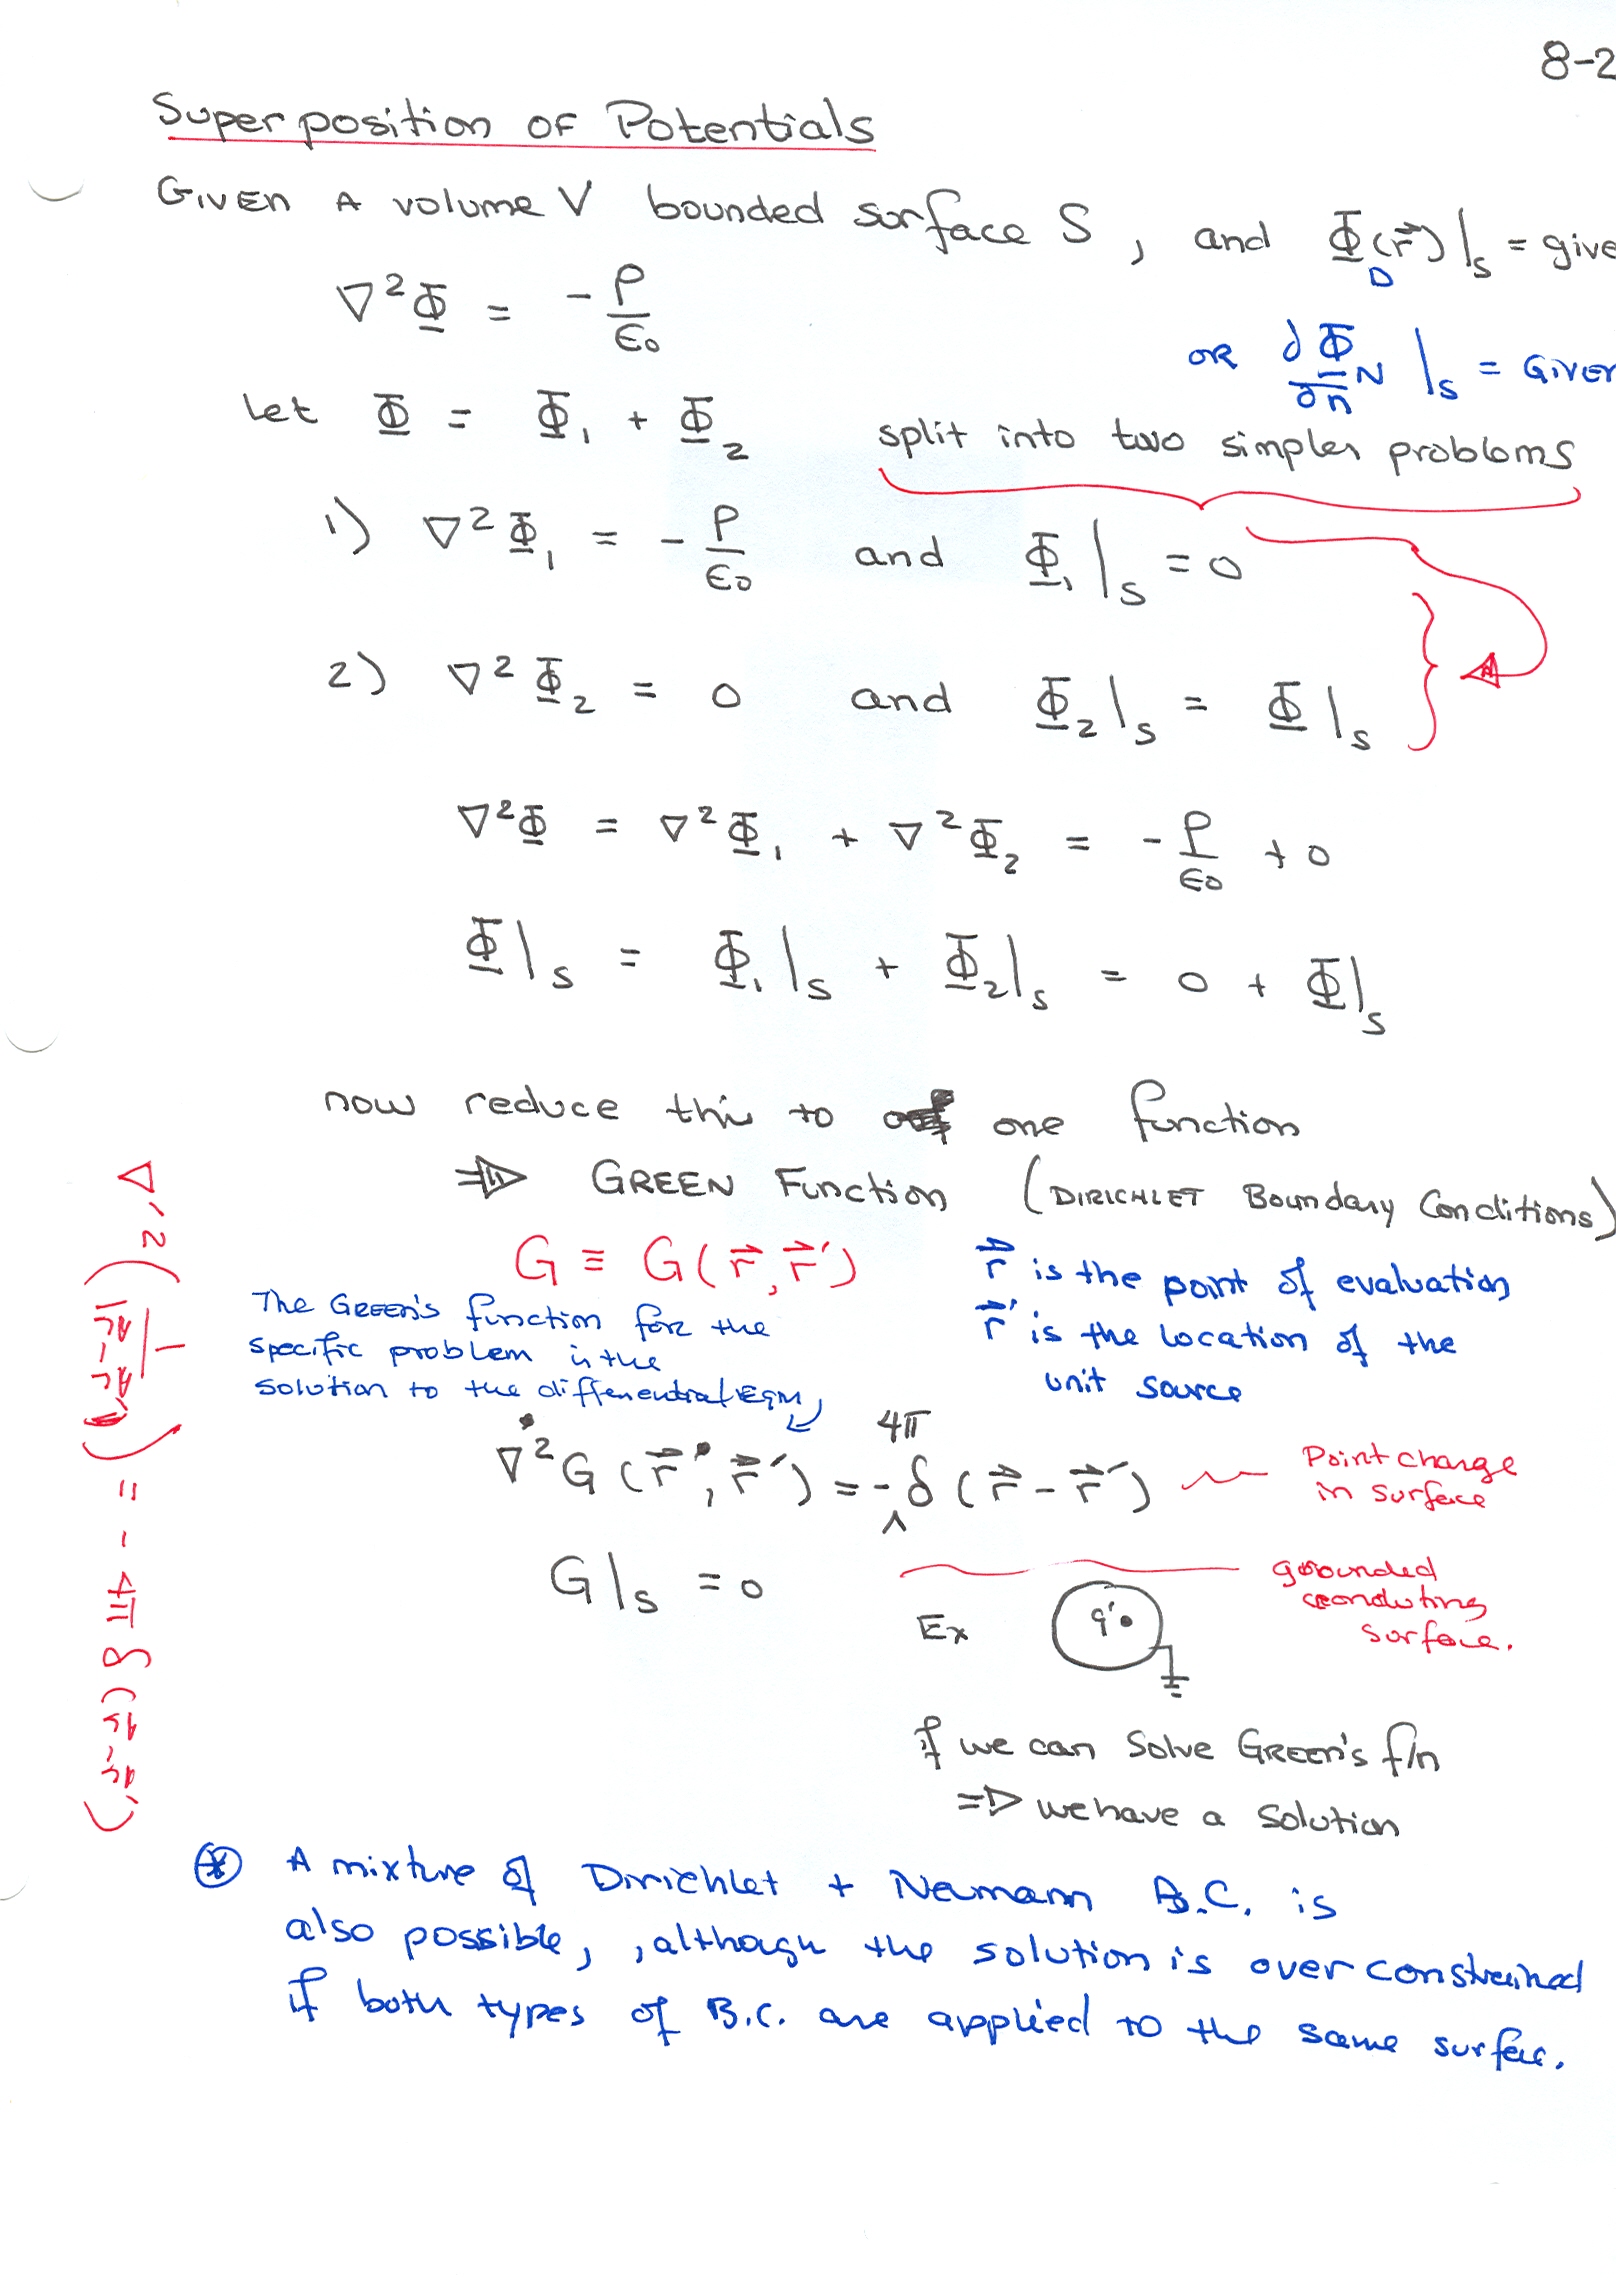 8-2
Superposition of Potentials
GIVEN A volume V bounded surface S, and Φ_D(r⃗)|_S = give
∇²Φ = -ρ/ε₀
OR ∂Φ_N/∂n|_S = GIVEN
Let Φ = Φ₁ + Φ₂
split into two simpler problems
1) ∇²Φ₁ = -ρ/ε₀ and Φ₁|_S = 0
2) ∇²Φ₂ = 0 and Φ₂|_S = Φ|_S
∇²Φ = ∇²Φ₁ + ∇²Φ₂ = -ρ/ε₀ + 0
Φ|_S = Φ₁|_S + Φ₂|_S = 0 + Φ|_S
now reduce this to one function
⇒ GREEN Function (DIRICHLET Boundary Conditions)
G ≡ G(r⃗, r⃗′)
r⃗ is the point of evaluation
r⃗′ is the location of the
unit source
The GREEN'S function for the
specific problem is the
solution to the differential EQN
∇²G(r⃗, r⃗′) = -4π δ(r⃗ - r⃗′)
Point charge
in surface
G|_S = 0
grounded
conducting
surface.
Ex q′
if we can solve GREEN'S f/n
⇒ we have a solution
∇′²(1/|r⃗ - r⃗′|) = -4π δ(r⃗ - r⃗′)
⊛ A mixture of Dirichlet + Neumann B.C. is
also possible, , although the solution is over constrained
if both types of B.C. are applied to the same surface.